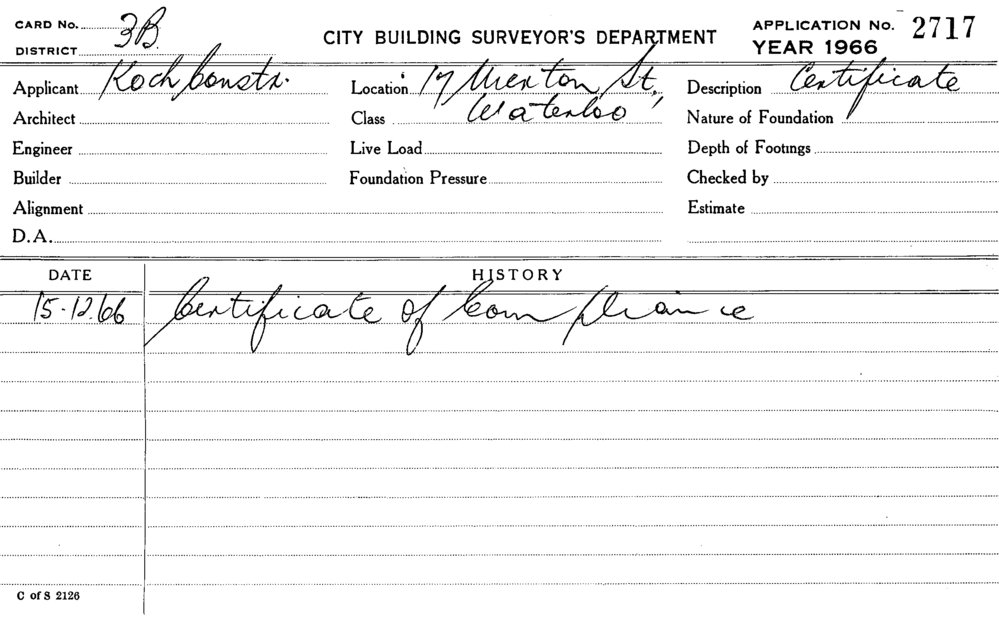 CARD No. 3B. CITY BUILDING SURVEYOR'S DEPARTMENT APPLICATION No. 2717
DISTRICT YEAR 1966
Applicant Koch Constr. Location 17 Merton St. Description Certificate
Architect Class Waterloo Nature of Foundation
Engineer Live Load Depth of Footings
Builder Foundation Pressure Checked by
Alignment Estimate
D.A.
DATE HISTORY
15.12.66 Certificate of Compliance
C of S 2126